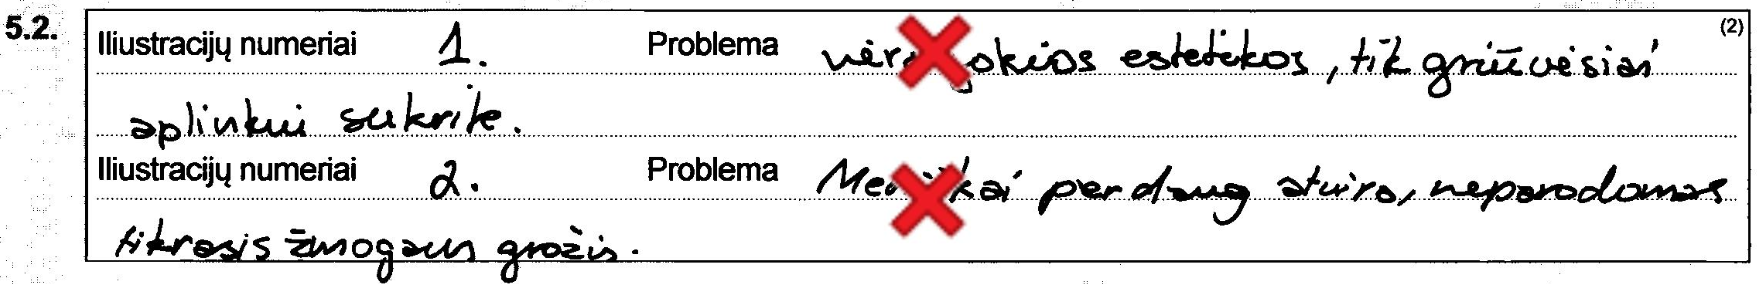 5.2. Iliustracijų numeriai 1. Problema okios estetikos, tik griūvėsiai (2)
aplinkui sukritę.
Iliustracijų numeriai 2. Problema per daug atvira, neparodomas
tikrasis žmogaus grožis.